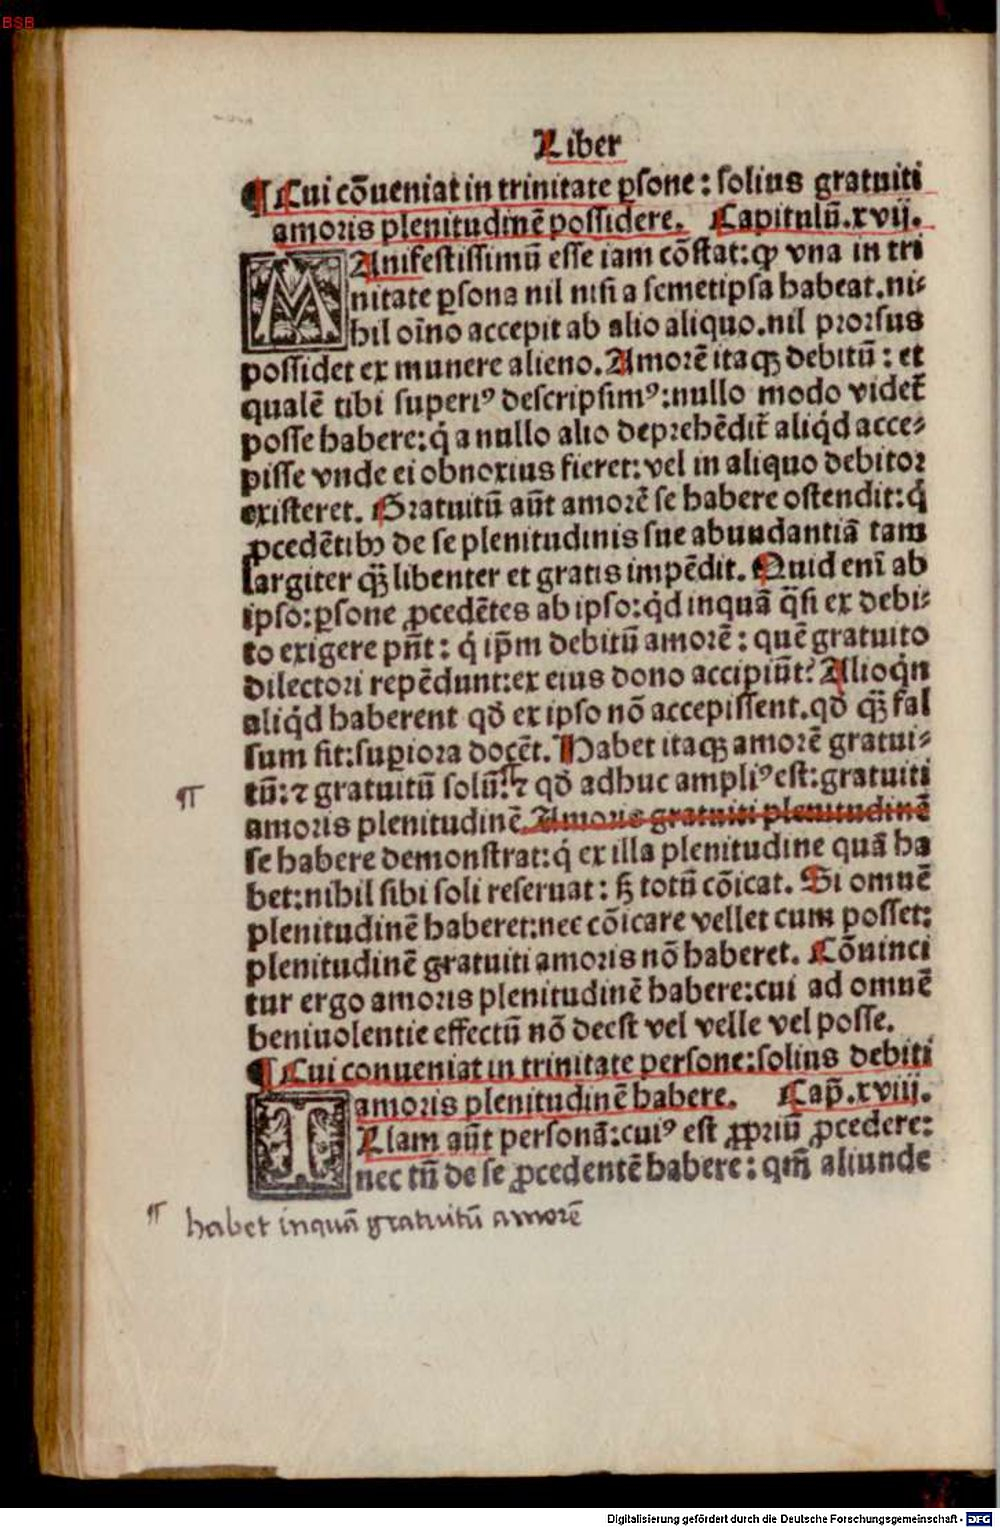 BSB
Liber
¶ Cui cōueniat in trinitate ꝑsone: solius gratuiti
amoris plenitudinē possidere. Capitulū.xvij.
MAnifestissimū esse iam cōstat: ꝙ vna in tri
nitate ꝑsona nil nisi a semetipsa habeat. ni⸗
hil oīno accepit ab alio aliquo. nil prorsus
possidet ex munere alieno. Amorē itaqꝫ debitū: et
qualē tibi superiꝰ descripsimꝰ: nullo modo videt̄
posse habere: q̇ a nullo alio deprehēdit̄ aliq̇d acce⸗
pisse vnde ei obnoxius fieret: vel in aliquo debitor
existeret. Gratuitū aūt amorē se habere ostendit: q̇
ꝓcedētibꝫ de se plenitudinis sue abundantiā tam
largiter qꝫ̄ libenter et gratis impēdit. Quid enī ab
ipso: ꝑsone ꝓcedētes ab ipso: q̇d inquā q̄si ex debi⸗
to exigere pn̄t: q̇ ip̄m debitū amorē: quē gratuito
dilectori repēdunt: ex eius dono accipiūt? Alioq̇n
aliq̇d haberent qḋ ex ipso nō accepissent. qḋ qꝫ̄ fal
sum sit: suꝑiora docēt. Habet itaqꝫ amorē gratui⸗
tū: ⁊ gratuitū solū: ⁊ qḋ adhuc ampliꝰ est: gratuiti
¶
amoris plenitudinē. Amoris gratuiti plenitudinē
se habere demonstrat: q̇ ex illa plenitudine quā ha
bet: nihil sibi soli reseruat: sꝫ totū cōicat. Si omnē
plenitudinē haberet: nec cōicare vellet cum posset:
plenitudinē gratuiti amoris nō haberet. Cōuinci
tur ergo amoris plenitudinē habere: cui ad omnē
beniuolentie effectū nō deest vel velle vel posse.
¶ Cui conueniat in trinitate persone: solius debiti
amoris plenitudinē habere. Cap̄.xviij.
ILlam aūt personā: cuiꝰ est ꝓpriū ꝓcedere:
nec tn̄ de se ꝓcedentē habere: qm̄ aliunde
¶ habet inquā gratuitū amorē
Digitalisierung gefördert durch die Deutsche Forschungsgemeinschaft - DFG